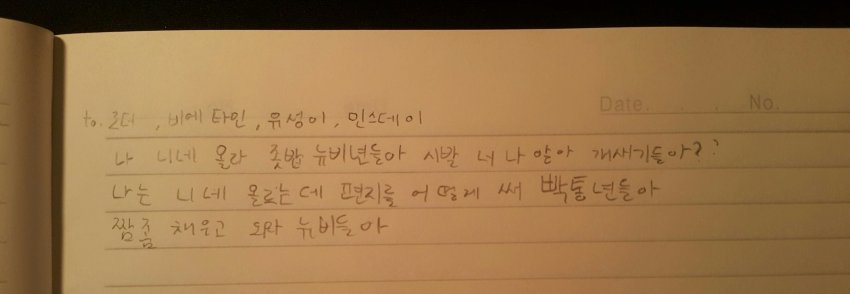 Date. . . No.
to. 로더, 비에타인, 유성이, 민스데이
나 니네 몰라 좃밥 뉴비년들아 시발 너 나 알아 개새기들아?
나는 니네 몰르는데 편지를 어떻게 써 빡통년들아
짬좀 채우고 와라 뉴비들아